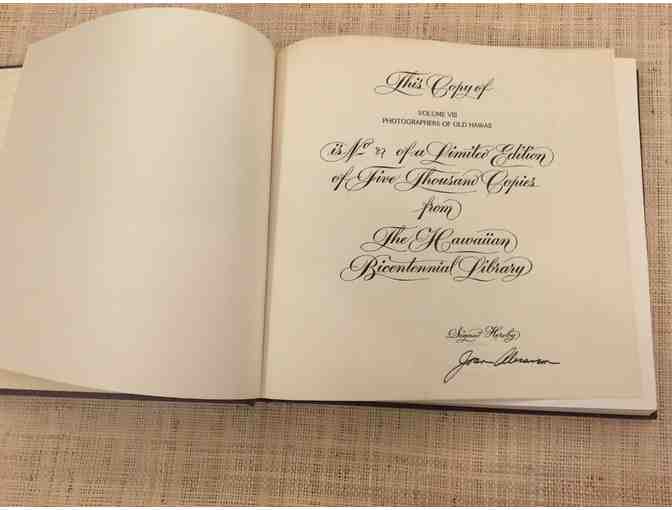 This Copy of
VOLUME VIII
PHOTOGRAPHERS OF OLD HAWAII
is No of a Limited Edition
of Five Thousand Copies
from
The Hawaiian
Bicentennial Library
Signed Hereby
Joan Abramson